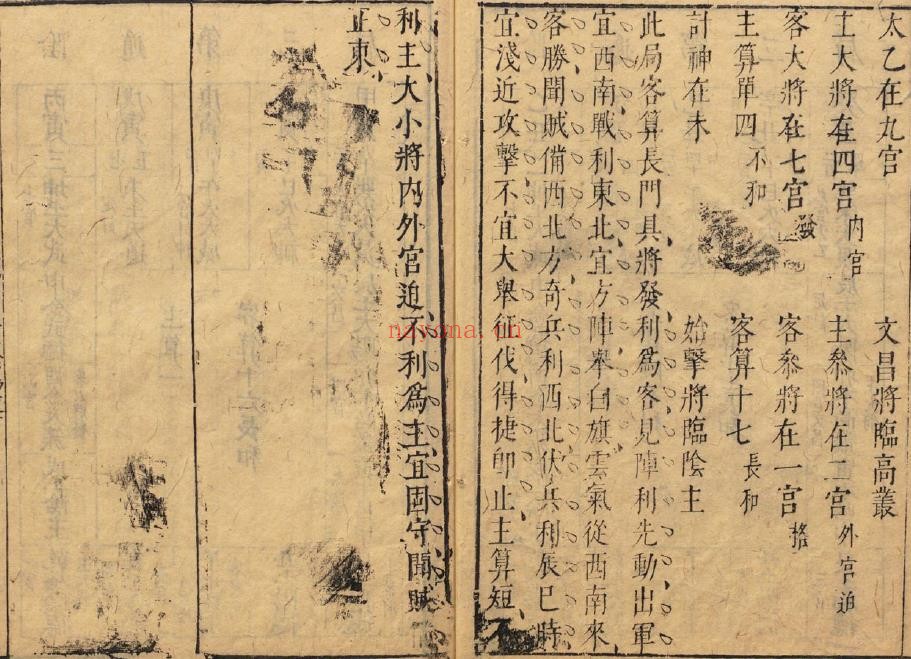 太乙在九宮 文昌將臨高叢
主大將在四宮內宮 主參將在二宮外宮迫
客大將在七宮發 客參將在一宮格
主算單四不和 客算十七長和
計神在未 始擊將臨陰主
此局客算長門具將發利為客見陣利先動出軍
宜西南戰利東北宜方陣舉白旗雲氣從西南來
客勝聞賊備西北方奇兵利西北伏兵利辰巳時
宜淺近攻擊不宜大舉征伐得捷即止主算短不
利主大小將內外宮迫不利為主宜固守聞賊
正東
nayona.cn